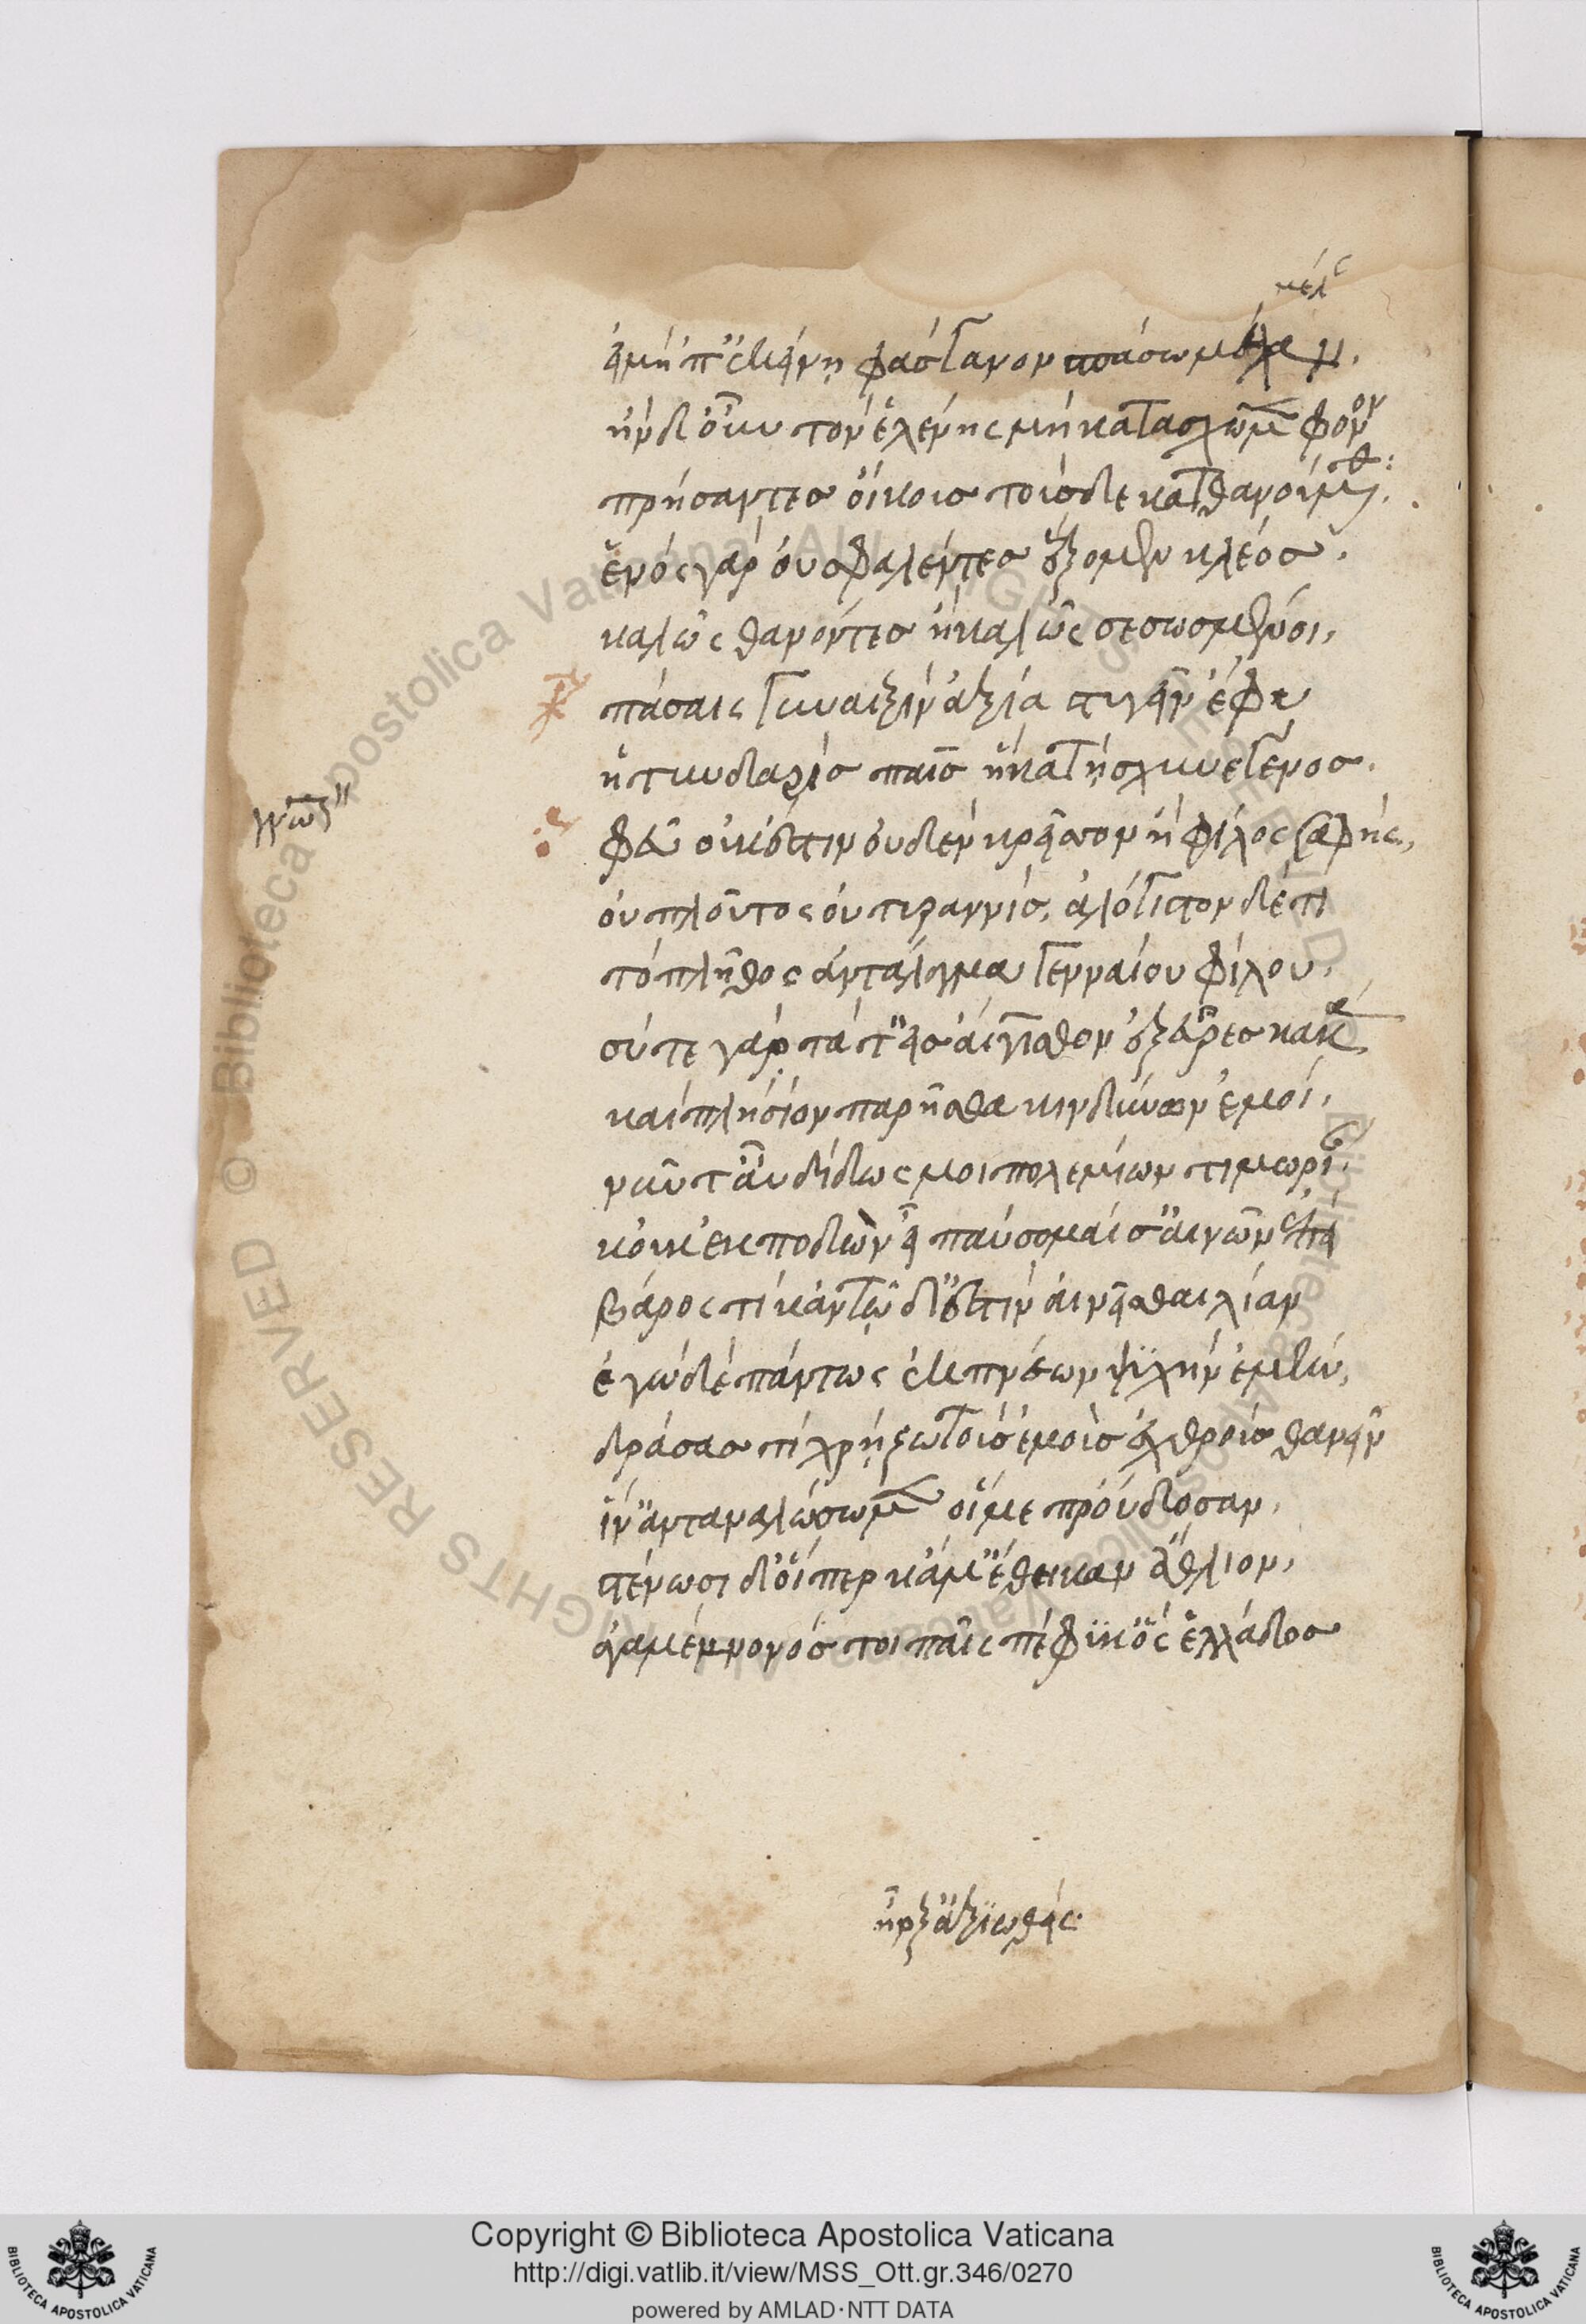 μέλαν
εἰ μὴ 'π' ἐκείνῃ φάσγανον σπάσω μέλαν.
ἢν δ' οὖν τὸν ἑλένης μὴ κατάσχωμεν φόνον
πρήσαντες οἴκους τούσδε κατθανούμεθα:
ἑνὸς γὰρ οὐ σφαλέντες ἕξομεν κλέος.
καλῶς θανόντες ἢ καλῶς σεσωσμένοι.
πάσαις γυναιξὶν ἀξία στυγεῖν ἔφυ
ἡ τυνδαρὶς παῖς ἣ κατήσχυνε γένος.
γνωμ
φεῦ οὐκ ἔστιν οὐδὲν κρεῖσσον ἢ φίλος σαφής,
οὐ πλοῦτος οὐ τυραννίς. ἀλόγιστον δέ τι
τὸ πλῆθος ἀντάλλαγμα γενναίου φίλου.
σύ τε γὰρ τὰ τ' εἰς αἴγισθον ἐξεῦρες κακὰ
καὶ πλησίον παρῆσθα κινδύνων ἐμοί.
νῦν τ' αὖ δίδως μοι πολεμίων τιμωρίαν
κοὐκ ἐκποδὼν εἶ παύσομαί σ' αἰνῶν ἐπεὶ
βάρος τι κἀν τῷ δ' ἐστὶν αἰνεῖσθαι λίαν
ἐγὼ δὲ πάντως ἐκπνέων ψυχὴν ἐμὴν,
δράσας τι χρῄζω τοὺς ἐμοὺς ἐχθροὺς θανεῖν
ἵν' ἀνταναλώσωμεν οἵ με προύδοσαν.
στένωσι δ' οἵπερ κἄμ' ἔθηκαν ἄθλιον.
ἀγαμέμνονός τοι παῖς πέφυκ' ὃς ἑλλάδος
ἦρξ' ἀξιωθείς
Copyright © Biblioteca Apostolica Vaticana
http://digi.vatlib.it/view/MSS_Ott.gr.346/0270
powered by AMLAD·NTT DATA